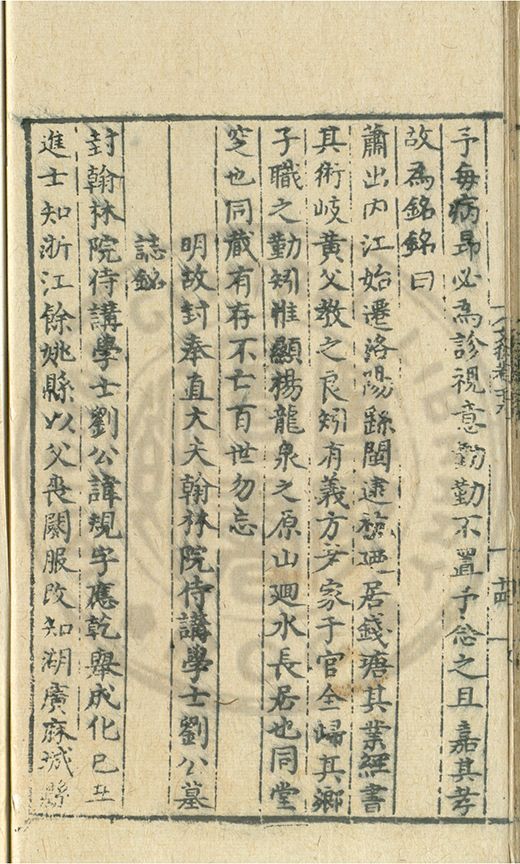 予每病昂必為診視意勤勤不置予念之且嘉其孝
故為銘銘曰
蕭出內江始遷洛陽繇閩逮 廼居錢塘其業經書
其術岐黃父教之良矧有義方 家于官全歸其鄉
子職之勤矧惟顯揚龍泉之原山廻水長居也同堂
窆也同藏有存不亡百世勿忘
明故封奉直大夫翰林院侍講學士劉公墓
誌銘
封翰林院侍講學士劉公諱規字應乾舉成化己丑
進士知浙江餘姚縣以父喪闋服改知湖廣麻城縣
十四